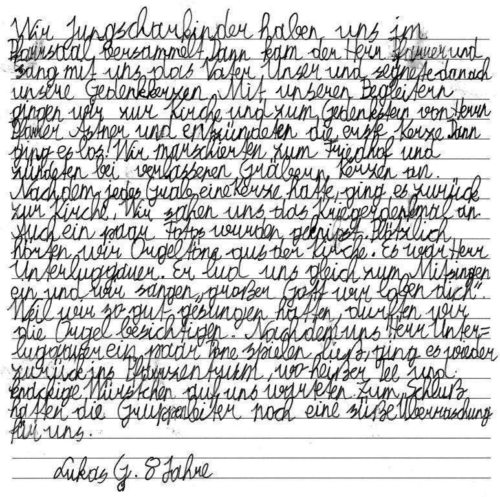 Wir Jungscharkinder haben uns im
Pfarrsaal versammelt. Dann kam der Herr Pfarrer und
sang mit uns das Vater Unser und segnete danach
unsere Gedenkkerzen. Mit unseren Begleitern
gingen wir zur Kirche und zum Gedenkstein von Herrn
Pfarrer Astner und entzündeten die erste Kerze. Dann
ging es los! Wir marschierten zum Friedhof und
zündeten bei verlassenen Gräbern Kerzen an.
Nachdem jedes Grab eine Kerze hatte, ging es zurück
zur Kirche. Wir sahen uns das Kriegerdenkmal an
Auch ein paar Fotos wurden geknipst. Plötzlich
hörten wir Orgeltöne aus der Kirche. Es war Herr
Unterluggauer. Er lud uns gleich zum Mitsingen
ein und wir sangen "großer Gott wir loben dich".
Weil wir so gut gesungen hatten, durften wir
die Orgel besichtigen. Nachdem uns Herr Unter=
luggauer ein paar Töne spielen ließ, ging es wieder
zurück ins Pfarrzentrum, wo heißer Tee und
knackige Würstchen auf uns warteten. Zum Schluß
hatten die Gruppenleiter noch eine süße Überraschung
für uns.
Lukas G. 8 Jahre